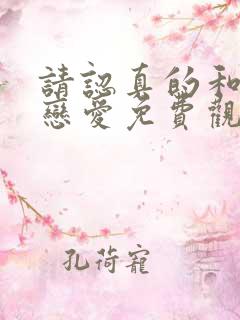 請認真的和
戀愛免費觀
孔荷寵